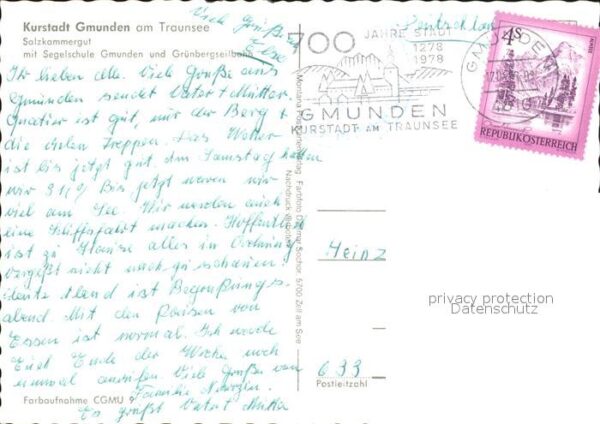 Viele Grüße
Else
Kurstadt Gmunden am Traunsee
Salzkammergut
mit Segelschule Gmunden und Grünbergseilbahn
Ihr lieben alle. Viele Grüße aus
Gmunden sendet Vater + Mutter.
Quatier ist gut, nur der Berg +
die vielen Treppen. Das Wetter
ist bis jetzt gut. Am Samstag hatten
wir 31° Bis jetzt waren wir
viel am See. Wir werden auch
eine Schiffsfahrt machen. Hoffentlich
ist zu Hause alles in Ordnung
vergeßt nicht nach zu schauen!
heute Abend ist Begrüßungs-
abend Mit den Preisen von
Essen ist normal. Ich werde
Euch Ende der Woche noch
einmal anrufen. Viele Grüße von
Familie
Es grüßt Vater + Mutter
Farbaufnahme CGMU 9
Deutschland
700 JAHRE STADT
1278
1978
GMUNDEN
KURSTADT AM TRAUNSEE
GMUNDEN
4S
REPUBLIK ÖSTERREICH
Nachdruck verboten
5700 Zell am See
Heinz
privacy protection
Datenschutz
633
Postleitzahl